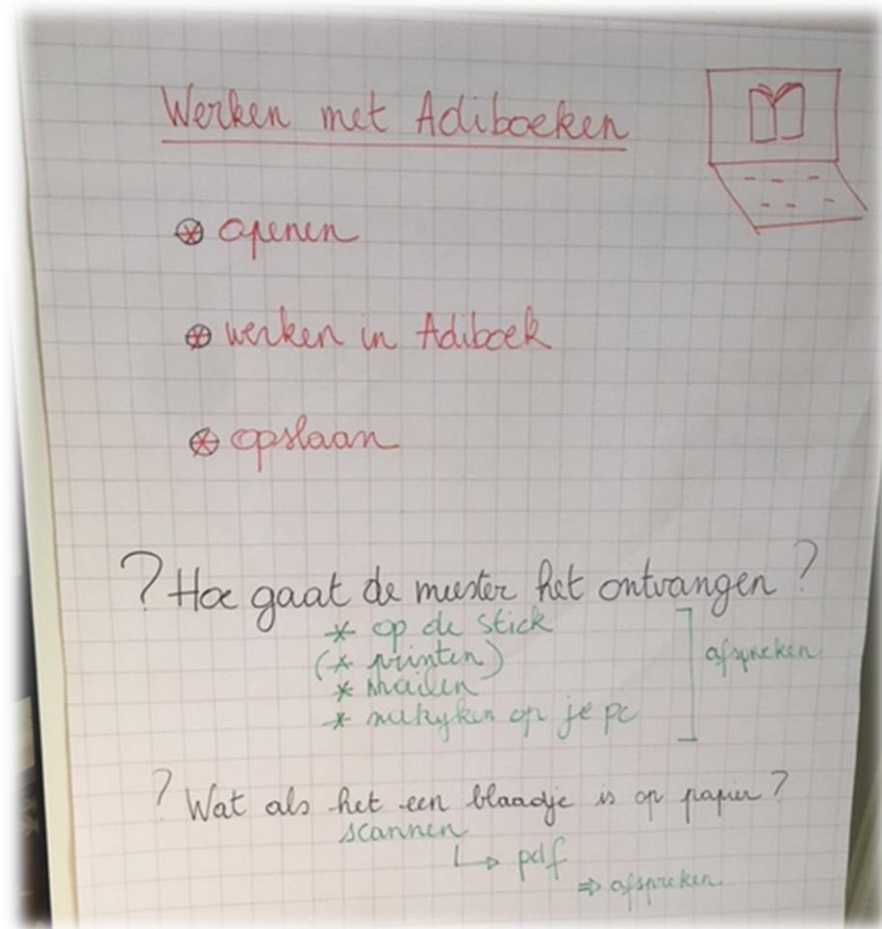 Werken met Adiboeken
⊛ openen
⊛ werken in Adiboek
⊛ opslaan
? Hoe gaat de meester het ontvangen ?
* op de stick
(* printen)
* mailen
* nakijken op je pc
afspreken
? Wat als het een blaadje is op papier ?
scannen
↳ pdf
⇒ afspreken